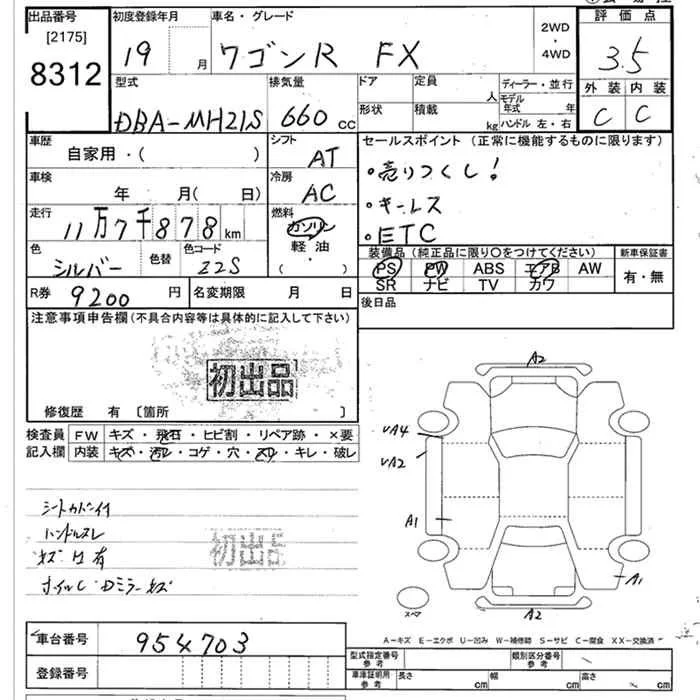 出品番号 初度登録年月 車名・グレード 2WD・4WD 評価点
[2175]
8312
19 月 ワゴンR FX 3.5
型式 排気量 ドア 定員 人 ディーラー・並行 外装 内装
DBA-MH21S 660 cc 形状 積載 kg モデル年式 年 C C
ハンドル 左・右
車歴 自家用・( ) シフト AT セールスポイント (正常に機能するものに限ります)
・売りつくし!
車検 年 月( 日) 冷房 AC
・キーレス
走行 11万7千878km 燃料 ガソリン
軽油・( )
・ETC
色 シルバー 色替 色コード Z2S
装備品 (純正品に限り○をつけてください) 新車保証書
PS PW ABS エアB AW 有・無
SR ナビ TV カワ
R券 9200円 名変期限 月 日 後日品
注意事項申告欄(不具合内容等は具体的に記入して下さい)
初出品
修復歴 有 〔箇所 〕
検査員 FW キズ・飛石・ヒビ割・リペア跡・×要
記入欄 内装 キズ・汚レ・コゲ・穴・スリ・キレ・破レ
ハンドルスレ
初出品
A2
A4
A2
A1
A1
A2
スペア
A-キズ E-エクボ U-凹み W-補修跡 S-サビ C-腐食 XX-交換済
車台番号 954703
登録番号
型式指定番号 参考 類別区分番号 参考
車庫証明用 参考 長さ cm 幅 cm 高さ cm